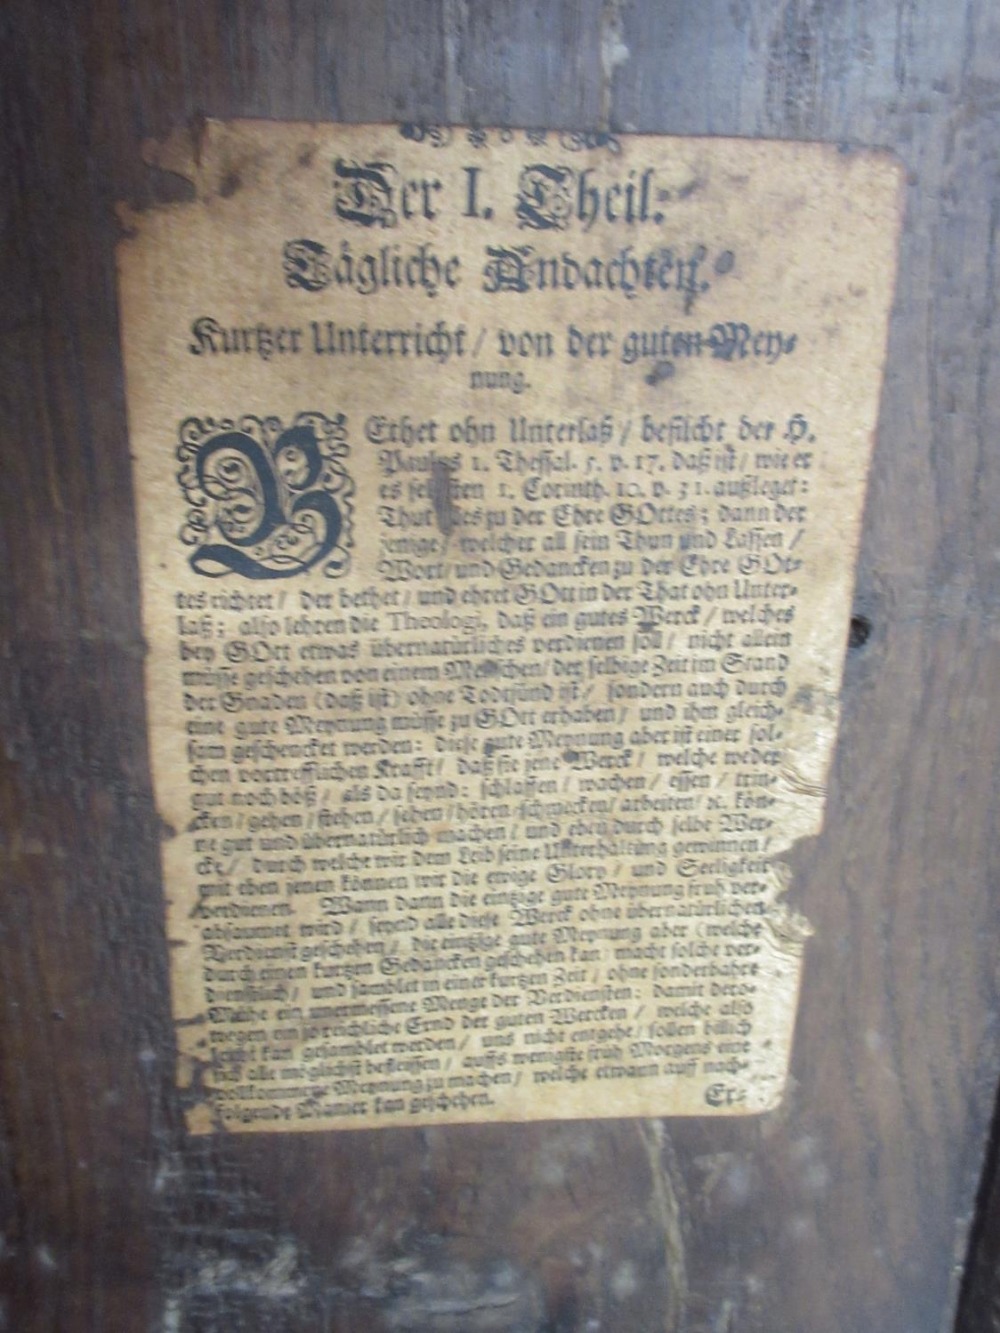 Der I. Theil.
Tägliche Andachten.
Kurtzer Unterricht / von der guten Mey-
nung.
BEthet ohn Unterlaß / befilcht der H.
Paulus 1. Thessal. 5. v. 17. daß ist / wie er
es selbsten 1. Corinth. 10. v. 31. außleget:
Thut es zu der Ehre GOttes; dann der
jenige / welcher all sein Thun und Lassen /
Wort / und Gedancken zu der Ehre GOt-
tes richtet / der bethet / und ehret GOtt in der That ohn Unter-
laß; also lehren die Theologi, daß ein gutes Werck / welches
bey GOtt etwas übernatürliches verdienen soll / nicht allein
müsse geschehen von einem Menschen / der selbige Zeit im Stand
der Gnaden (daß ist) ohne Todtsünd ist / sondern auch durch
eine gute Meynung müsse zu GOtt erhaben / und ihm gleich-
sam geschencket werden: diese gute Meynung aber ist einer sol-
chen vortrefflichen Krafft / daß sie jene Werck / welche weder
gut noch böß / als da seynd: schlaffen / wachen / essen / trin-
cken / gehen / stehen / sehen / hören / schmecken / arbeiten / ꝛc. kön-
ne gut und übernatürlich machen / und eben durch selbe Wer-
cke / durch welche wir dem Leib seine Unterhaltung gewinnen /
mit eben jenen können wir die ewige Glory / und Seeligkeit
verdienen. Wann dann die eintzige gute Meynung fruh ver-
absaumet wird / seynd alle diese Werck ohne übernatürlichen
Verdienst geschehen / die eintzige gute Meynung aber (welche
durch einen kurtzen Gedancken geschehen kan) macht solche ver-
dienstlich / und samblet in einer kurtzen Zeit / ohne sonderbahre
Mühe ein unermessene Menge der Verdiensten: damit dero-
wegen ein so reichliche Ernd der guten Wercken / welche also
leicht kan gesamblet werden / uns nicht entgehe / sollen billich
sich alle möglichst befleissen / auffs wenigste fruh Morgens eine
vollkommene Meynung zu machen / welche etwann auff nach-
folgende Manier kan geschehen.
Er-